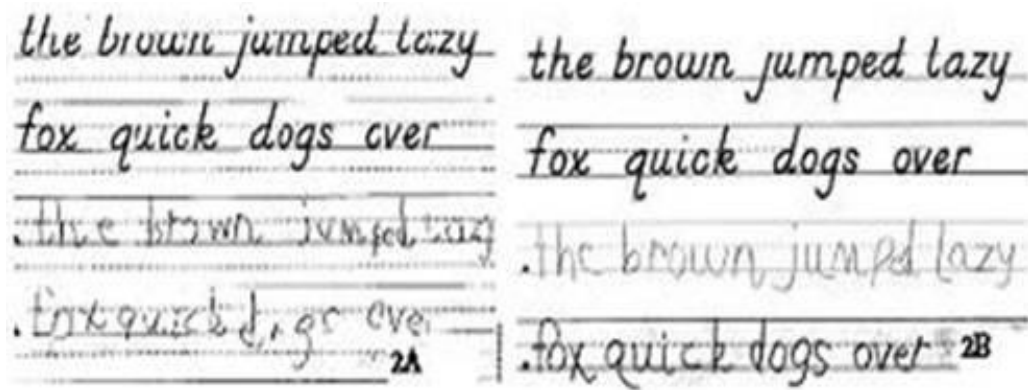 the brown jumped lazy
fox quick dogs over
.the brown jumped lazy
.fox quick
2A
the brown jumped lazy
fox quick dogs over
.the brown jumped lazy
.fox quick dogs over
2B